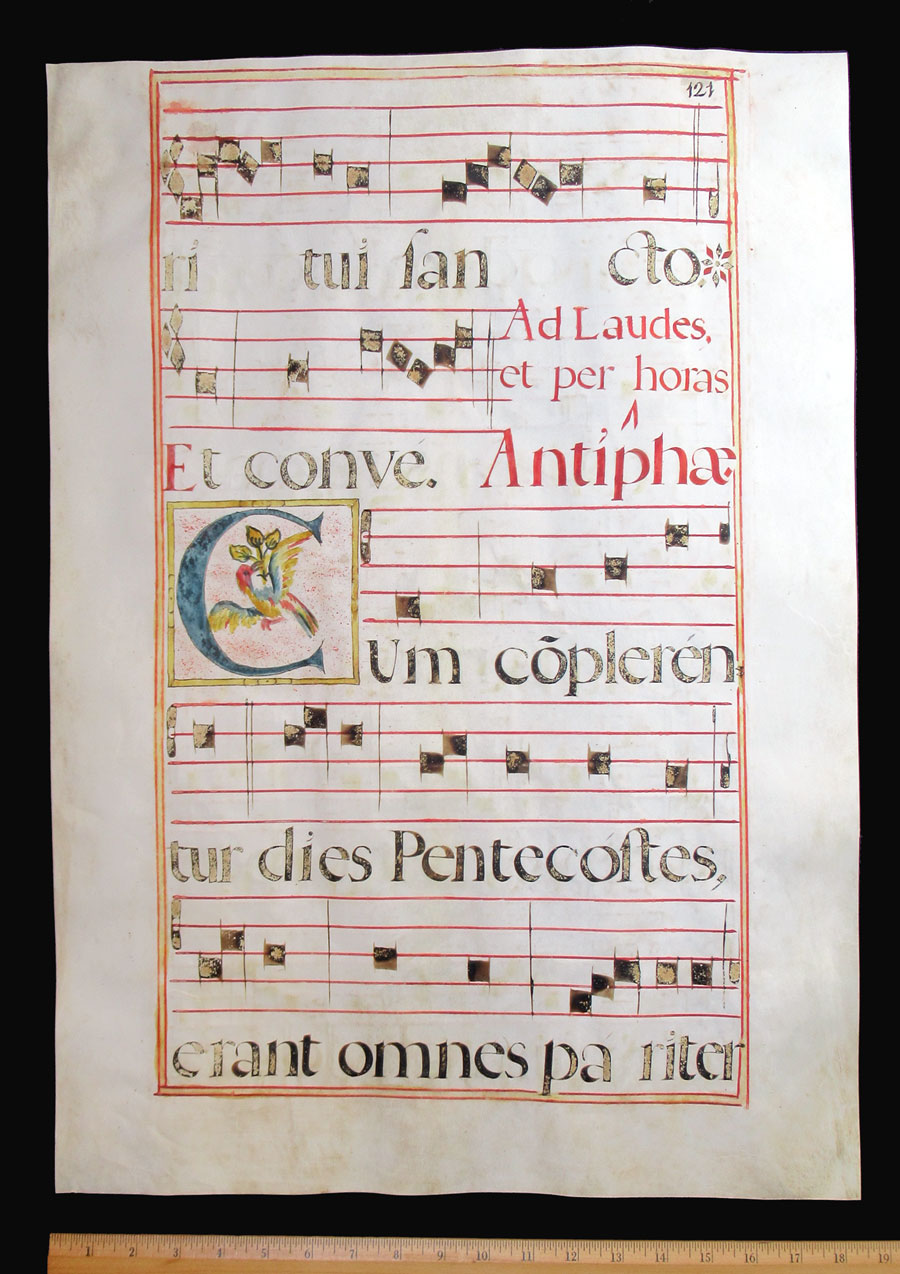 121
ri tui ſan cto.
Ad Laudes,
et per horas
Et convé. Antiphæ
CUm cõplerén
tur dies Pentecoſtes,
erant omnes pa riter
1 2 3 4 5 6 7 8 9 10 11 12 13 14 15 16 17 18 19